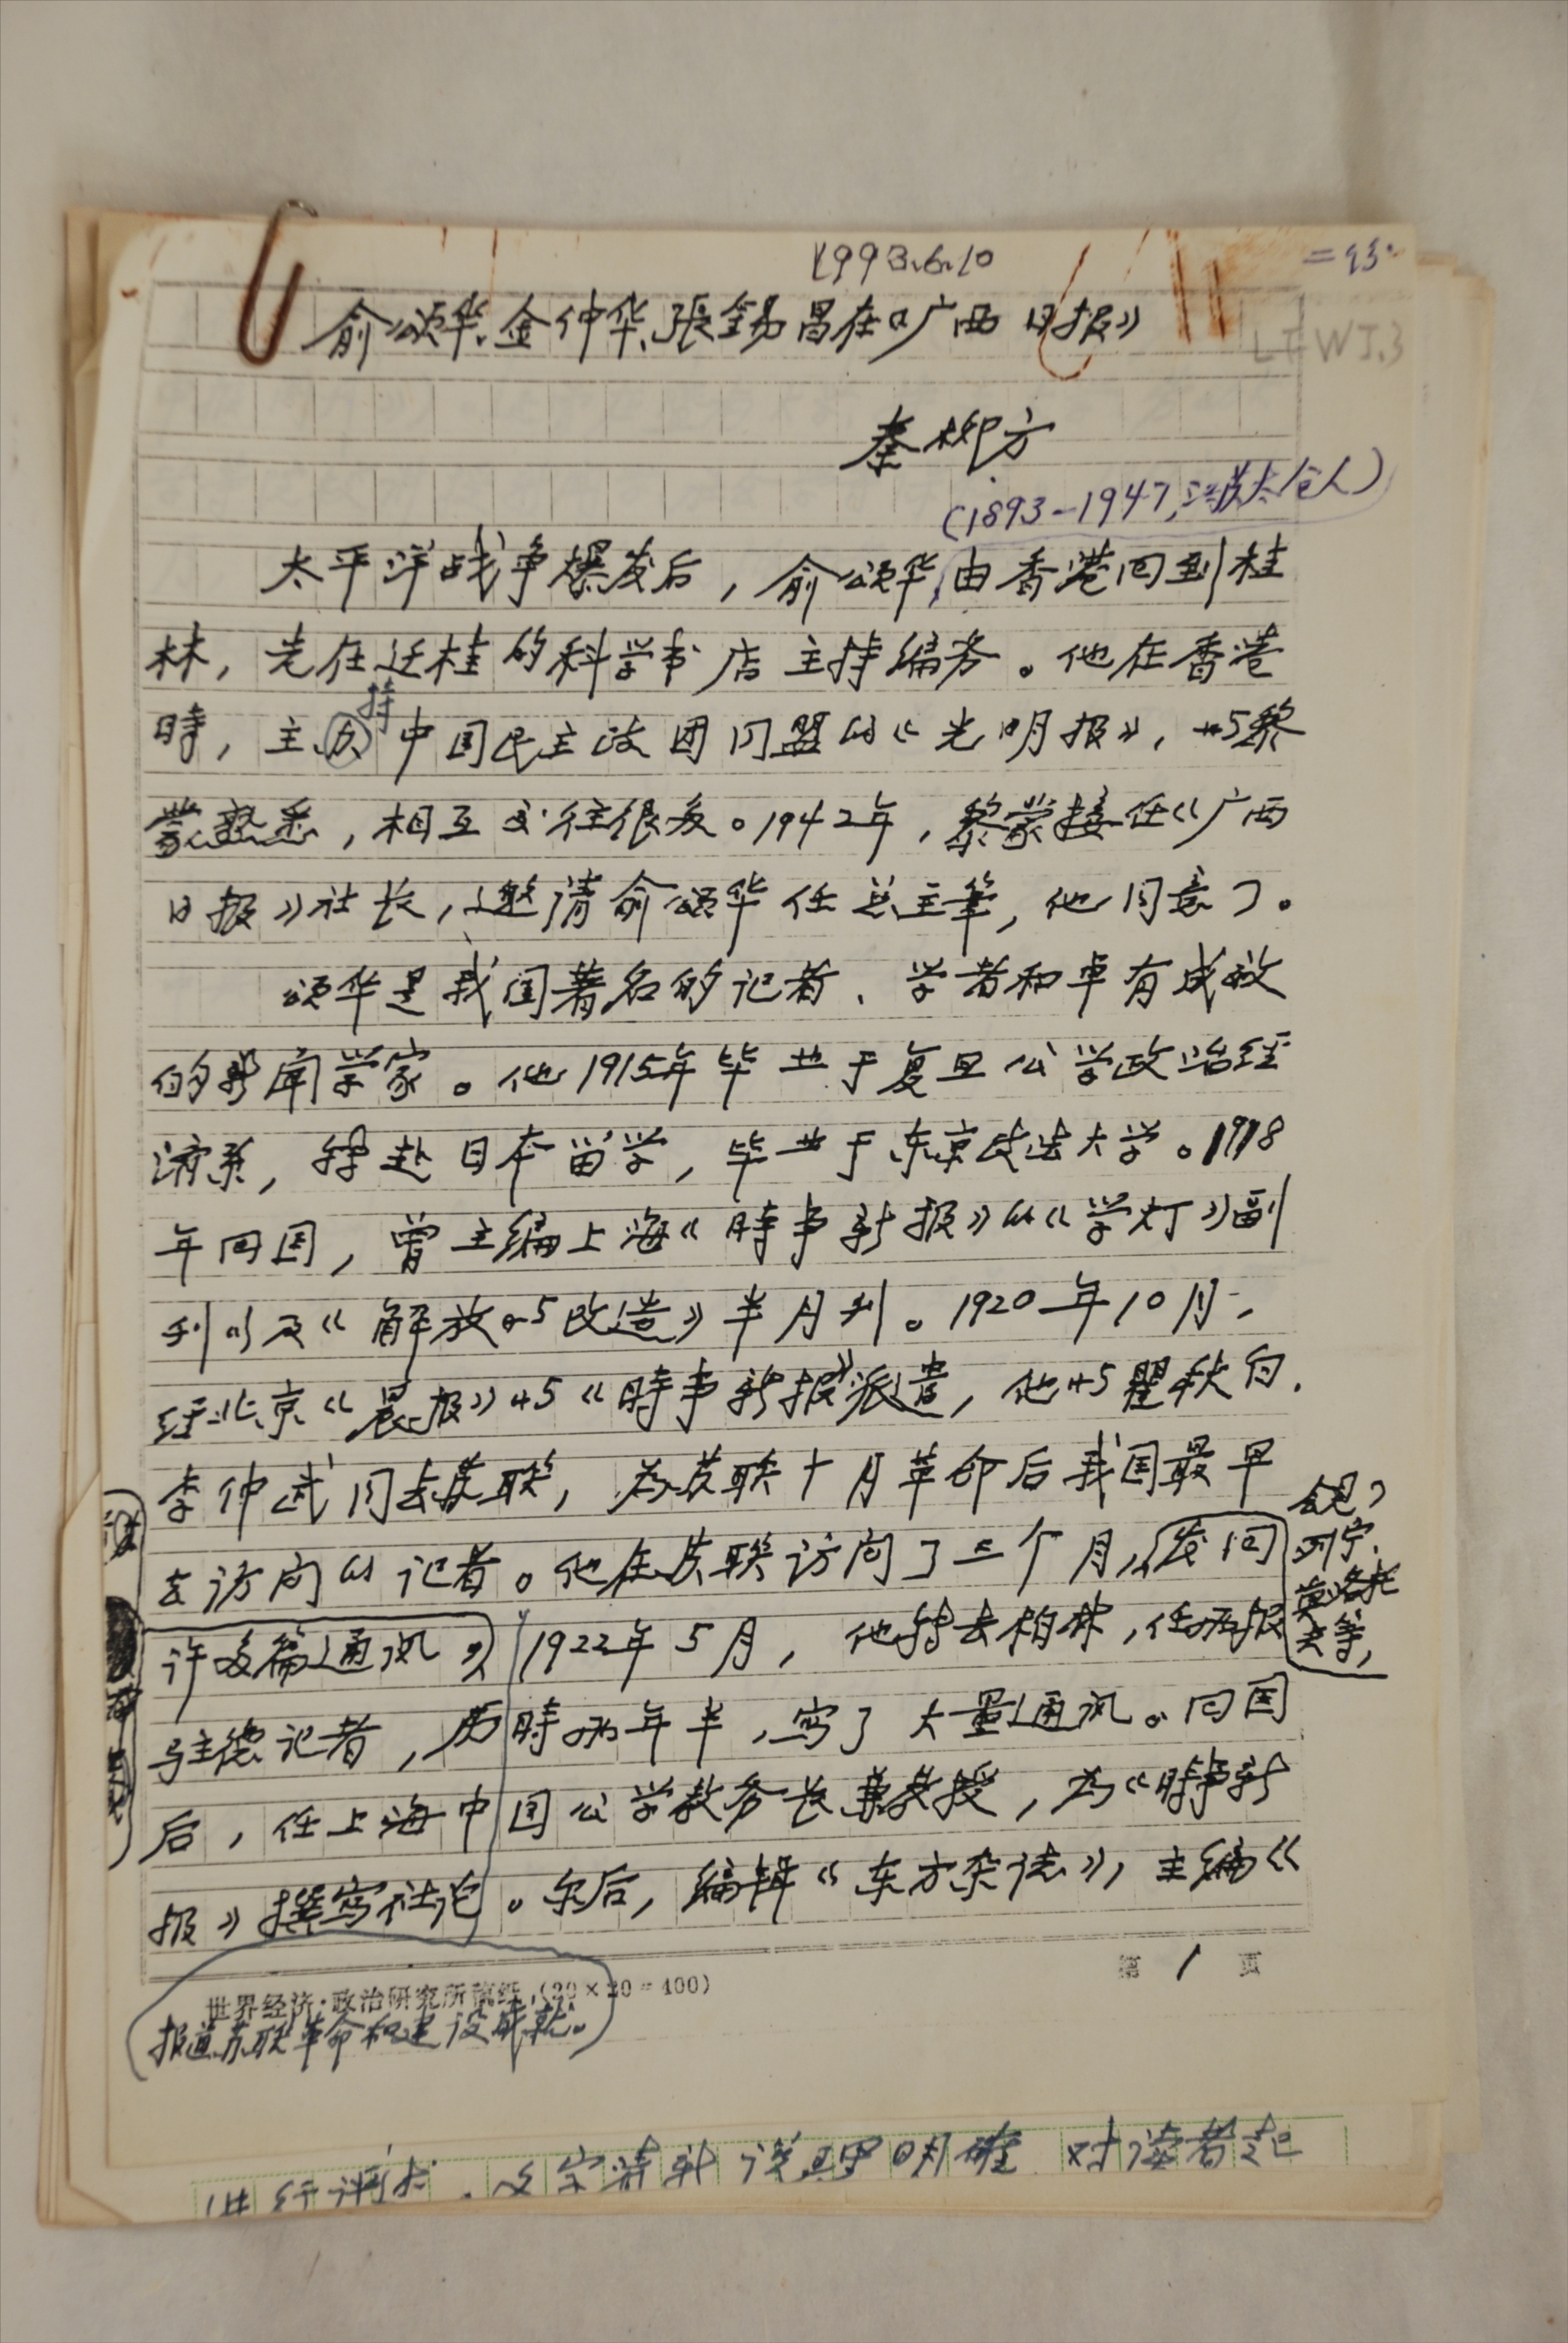 1993.6.10
俞颂华、金仲华、張錫昌在《广西日报》
秦柳方
(1893-1947,江苏太仓人)
太平洋战争爆发后，俞颂华由香港回到桂
林，先在迁桂的科学书店主持编务。他在香港
時，主办持中国民主政团同盟的《光明报》，与黎
蒙熟悉，相互交往很多。1942年，黎蒙接任《广西
日报》社长，邀请俞颂华任总主筆，他同意了。
颂华是我国著名的记者、学者和卓有成效
的新闻学家。他1915年毕业于复旦公学政治经
济系，得赴日本留学，毕业于东京政法大学。1918
年回国，曾主编上海《時事新报》的《学灯》副
刊以及《解放与改造》半月刊。1920年10月，
经北京《晨报》与《時事新报》派遣，他与瞿秋白、
李仲武同去苏联，为苏联十月革命后我国最早
去访问的记者。他在苏联访问了三个月，发回
会见了
列宁、
莫洛托
夫等，
许多篇通讯。1922年5月，他转去柏林，任两报
驻德记者，历時两年半，写了大量通讯。回国
后，任上海中国公学教务长兼教授，为《時事新
报》撰写社论。尔后，编辑《东方杂志》，主编《
世界经济·政治研究所稿纸 (20×20=400)
第 1 页
报道苏联革命和建设成就。
进行评述，文字清新说理明確 对读者起